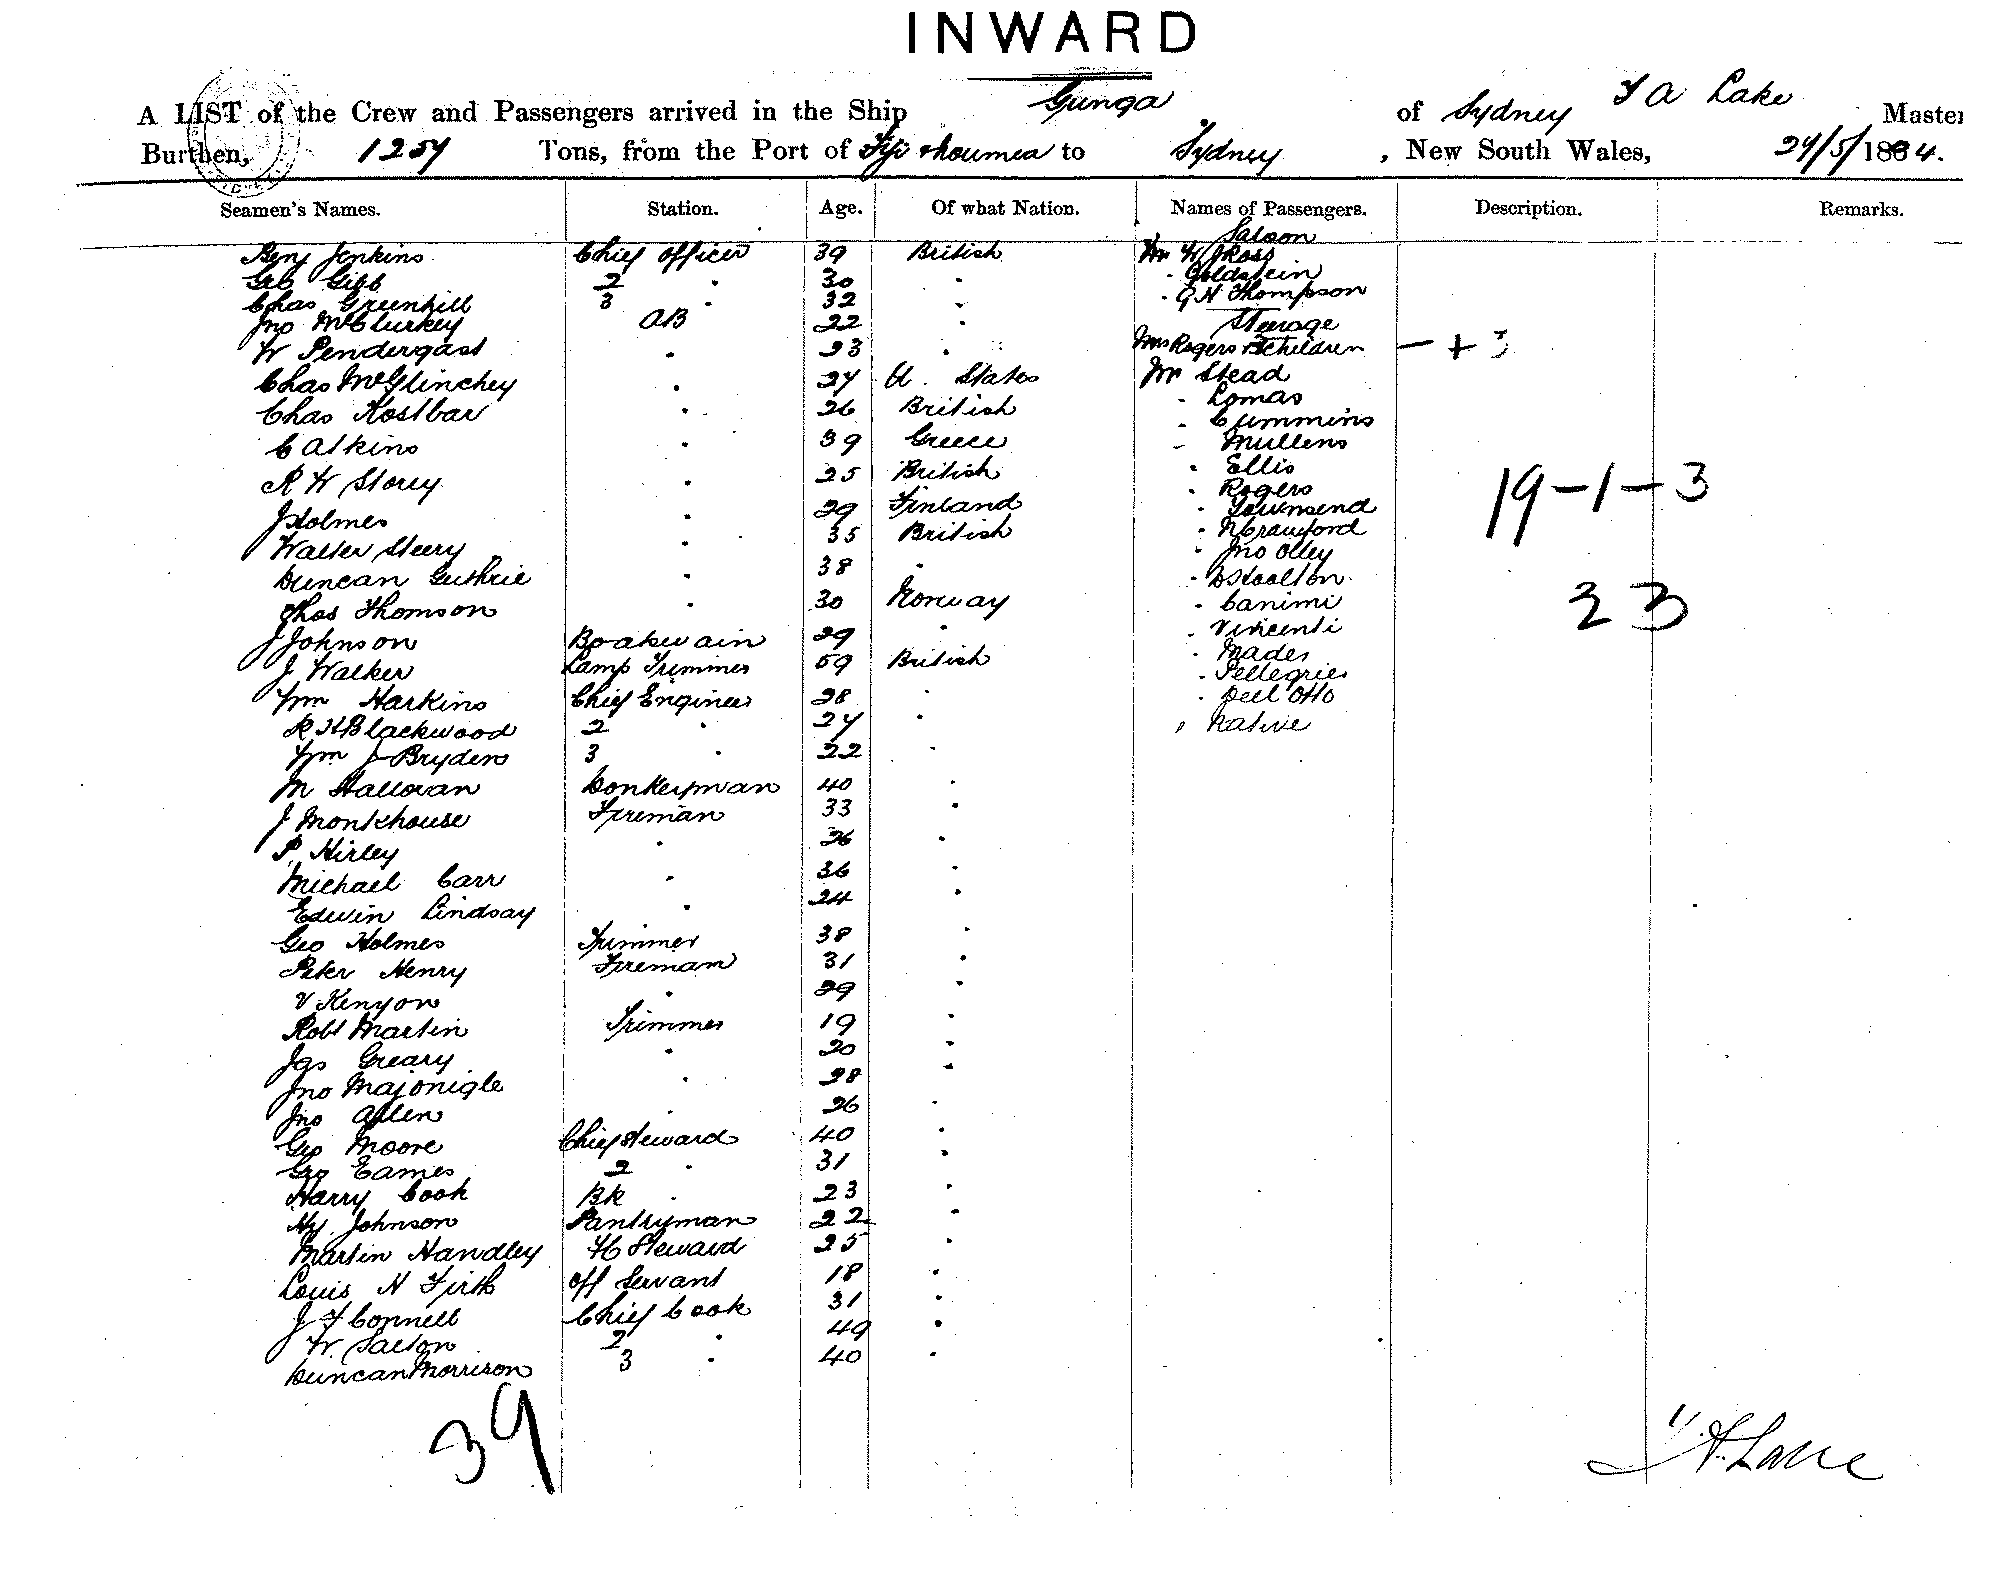 INWARD
A LIST of the Crew and Passengers arrived in the Ship Gunga of Sydney T A Lake Master
Burthen, 1257 Tons, from the Port of Fiji & Noumea to Sydney, New South Wales, 24/5/1884.
Seamen's Names. Station. Age. Of what Nation. Names of Passengers. Description. Remarks.
Saloon
Benj Jenkins Chief Officer 39 British Mr W Ross
Geo Gibb 2 " 30 " " Goldstein
Chas Greenhill 3 " 32 " " G H Thompson
Jno McClurkey AB 22 " Steerage
W Pendergast " 23 " Mrs Rogers & children — + 3
Chas McGlinchey " 27 U. States Mr Stead
Chas Kostbar " 26 British " Lomas
" Cummins
C Atkins " 39 Greece " Mullens
R W Storey " 25 British " Ellis
" Rogers 19 - 1 - 3
J Holmes " 29 Finland " Townsend
Walter Steery " 35 British " N Crawford
" Jno Olley
Duncan Guthrie " 38 "
Thos Thomson " 30 Norway " Canimi 23
J Johnson Boatswain 29 " " Vincenti
J. Walker Lamp Trimmer 59 British " Mades
" Pellegries
Wm Harkins Chief Engineer 28 " " Otto
R H Blackwood 2 " 27 " " Native
Wm J Bryden 3 " 22 "
M Halloran Donkeyman 40 "
J Monkhouse Fireman 33 "
P. Hirley " 26 "
Michael Carr " 36 "
Edwin Lindsay " 24 "
Geo Holmes Trimmer 38 "
Peter Henry Fireman 31 "
V Kenyon " 29 "
Robt Martin Trimmer 19 "
Jas Greary " 20 "
Jno Majonigle " 28 "
Jno Allen " 26 "
Geo Moore Chief Steward 40 "
Geo Eames 2 " 31 "
Harry Cook BK " 23 "
Hy. Johnson Pantryman 22 "
Martin Handley Steward 25 "
Louis N Firth Off Servant 18 "
J F Connell Chief Cook 31 "
W. Salton 2 " 49 "
Duncan Morrison 3 " 40 "
39
T A Lake